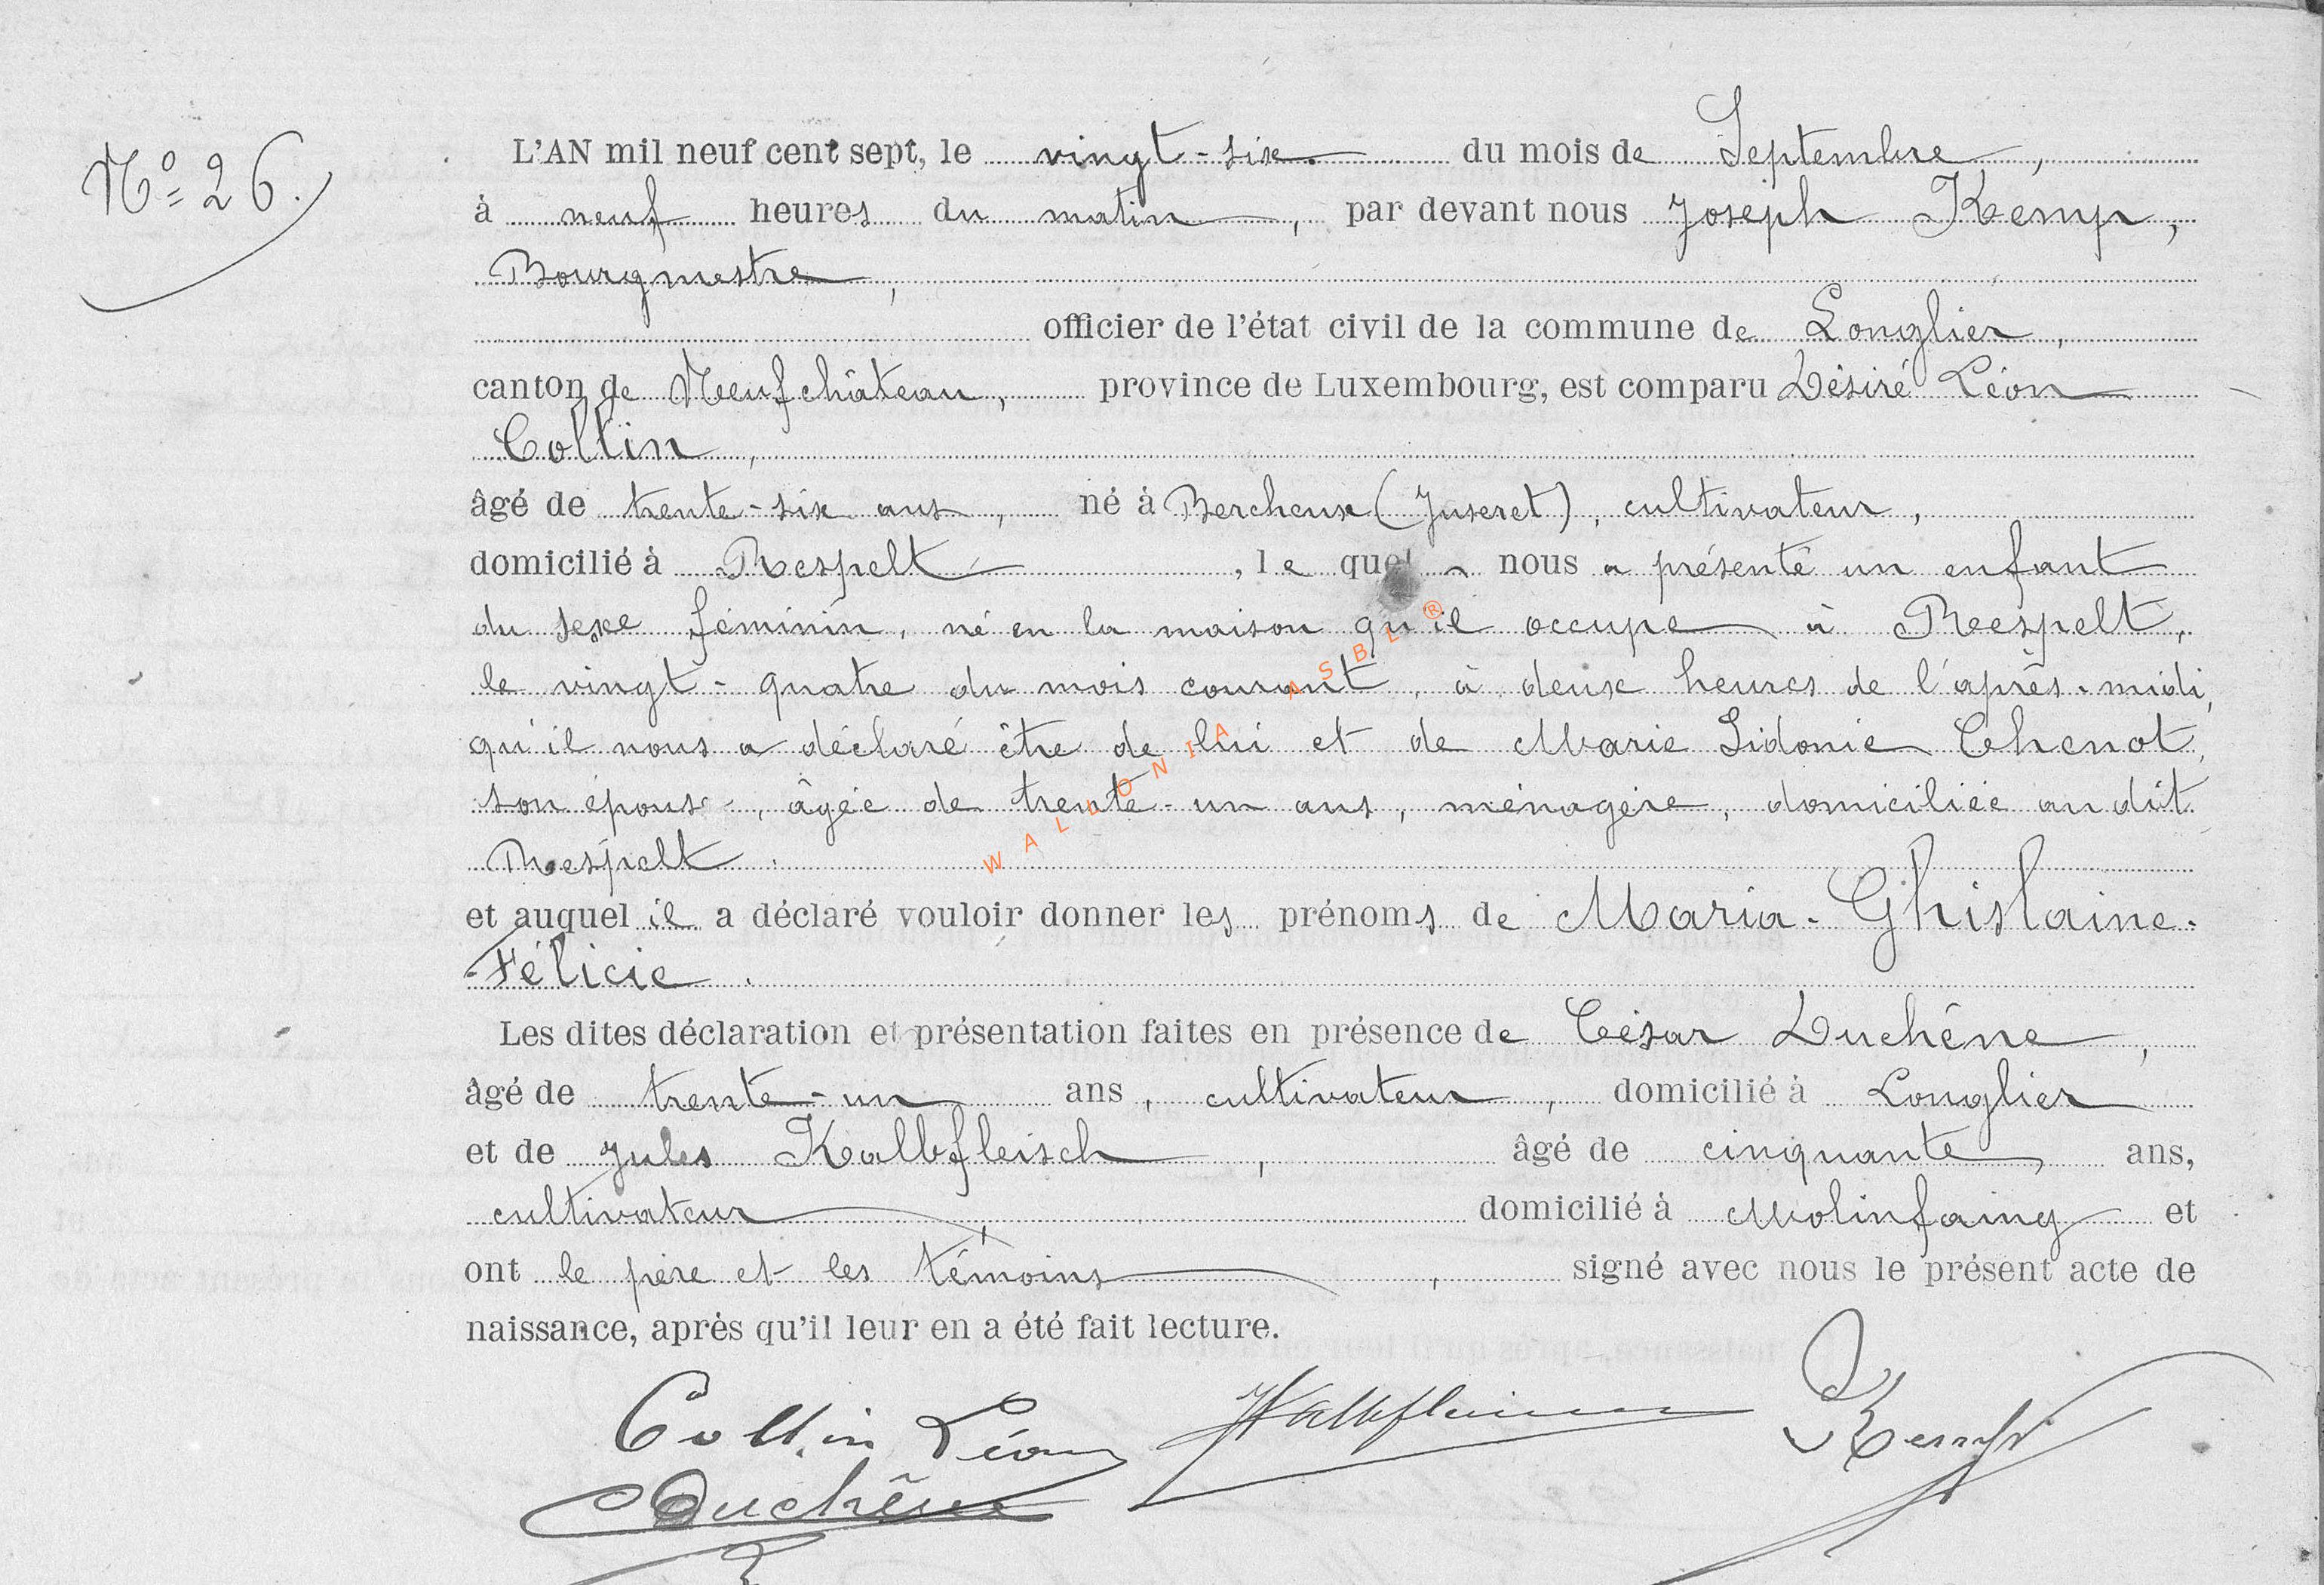 N° 26.
L'AN mil neuf cent sept, le vingt-six. du mois de Septembre,
à neuf heures du matin, par devant nous Joseph Kemp,
Bourgmestre,
officier de l'état civil de la commune de Longlier,
canton de Neufchâteau, province de Luxembourg, est comparu Désiré Léon
Collin,
âgé de trente-six ans, né à Bercheux (Juseret), cultivateur,
domicilié à Respelt, le quel nous a présenté un enfant
du sexe féminin, né en la maison qu'il occupe à Respelt,
le vingt-quatre du mois courant, à deux heures de l'après-midi,
qu'il nous a déclaré être de lui et de Marie Sidonie Chenot,
son épouse, âgée de trente-un ans, ménagère, domiciliée audit
Respelt.
et auquel il a déclaré vouloir donner les prénoms de Maria-Ghislaine-
-Félicie.
Les dites déclaration et présentation faites en présence de César Duchêne,
âgé de trente-un ans, cultivateur, domicilié à Longlier
et de Jules Kalbfleisch, âgé de cinquante ans,
cultivateur, domicilié à Molinfaing et
ont le père et les témoins, signé avec nous le présent acte de
naissance, après qu'il leur en a été fait lecture.
Collin Léon JKalbfleisch Kemp
Duchêne
WALLONIA ASBL ®